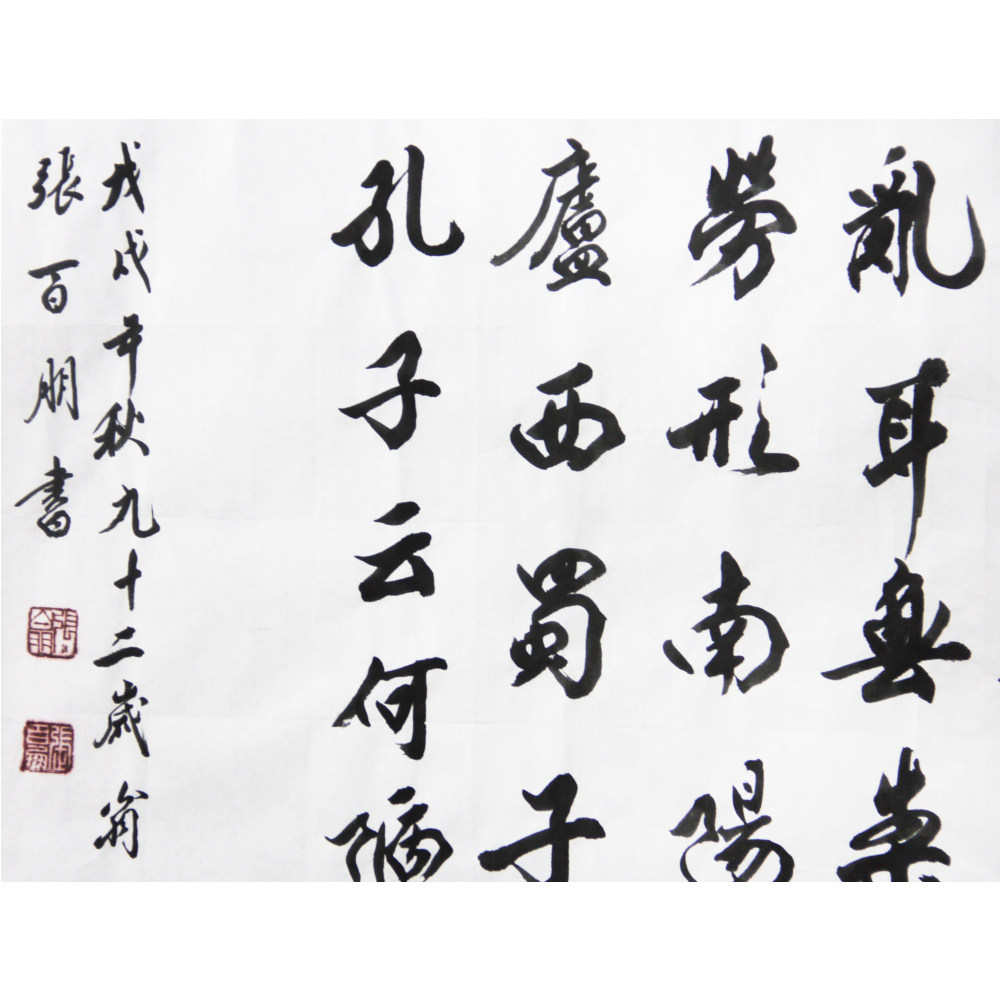 亂耳無案
勞形南陽
廬西蜀子
孔子云何陋
戊戌年秋九十二歲翁
張百朋書